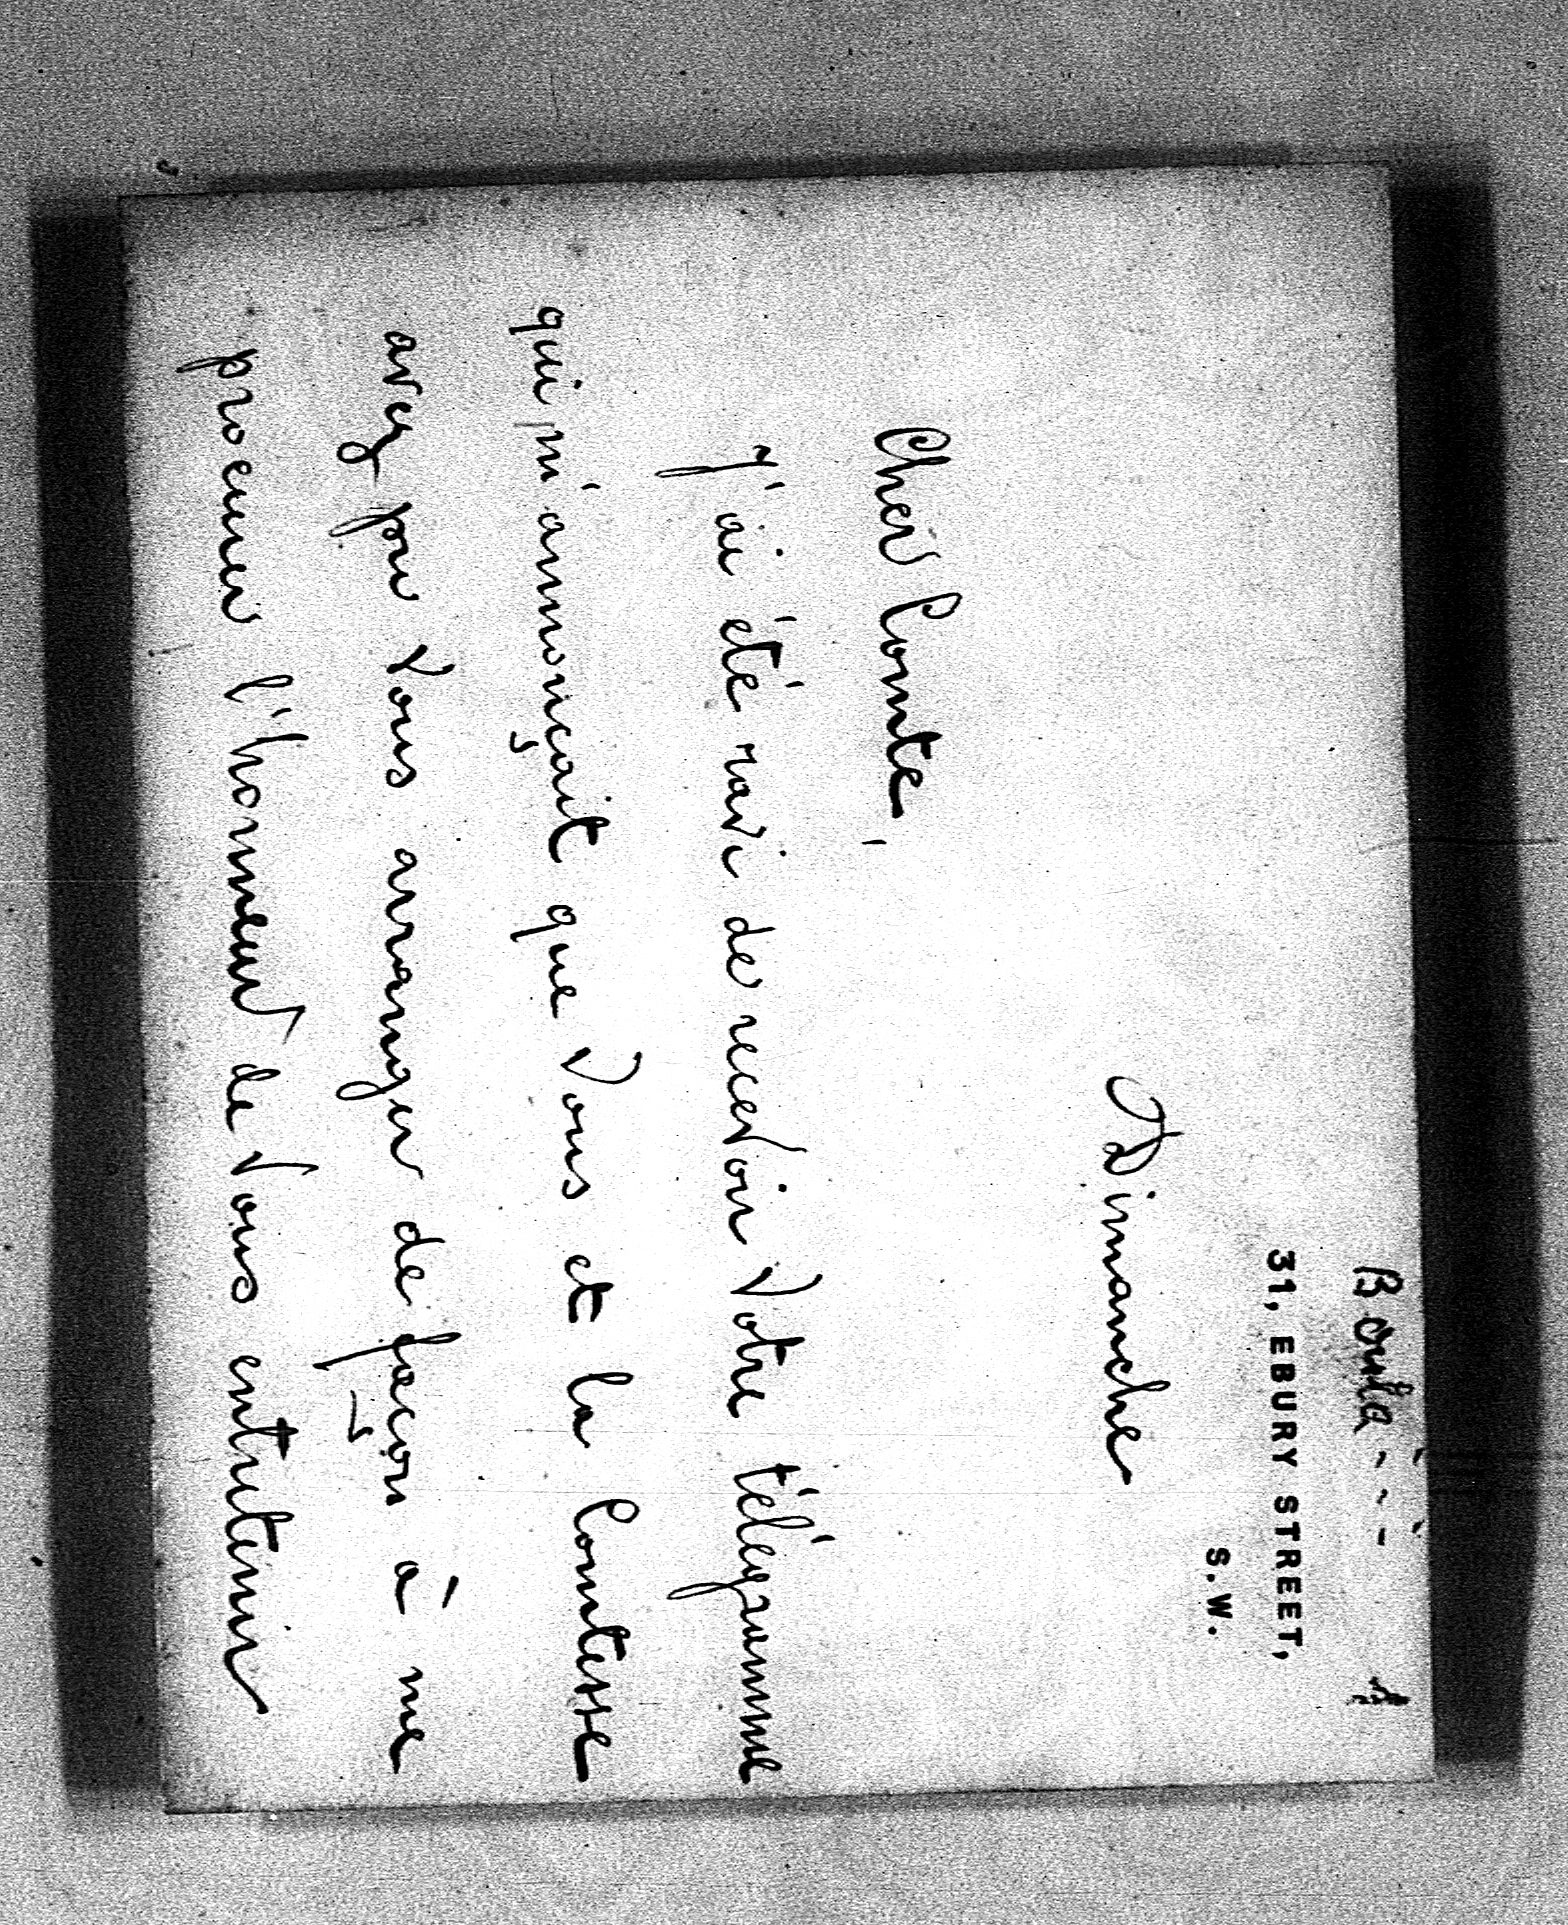 31, EBURY STREET,
S.W.
Dimanche
Cher Comte,
J'ai été ravi de recevoir Votre télégramme
qui m'annonçait que Vous et la Comtesse
avez pu Vous arranger de façon à me
procurer l'honneur de Vous entretenir